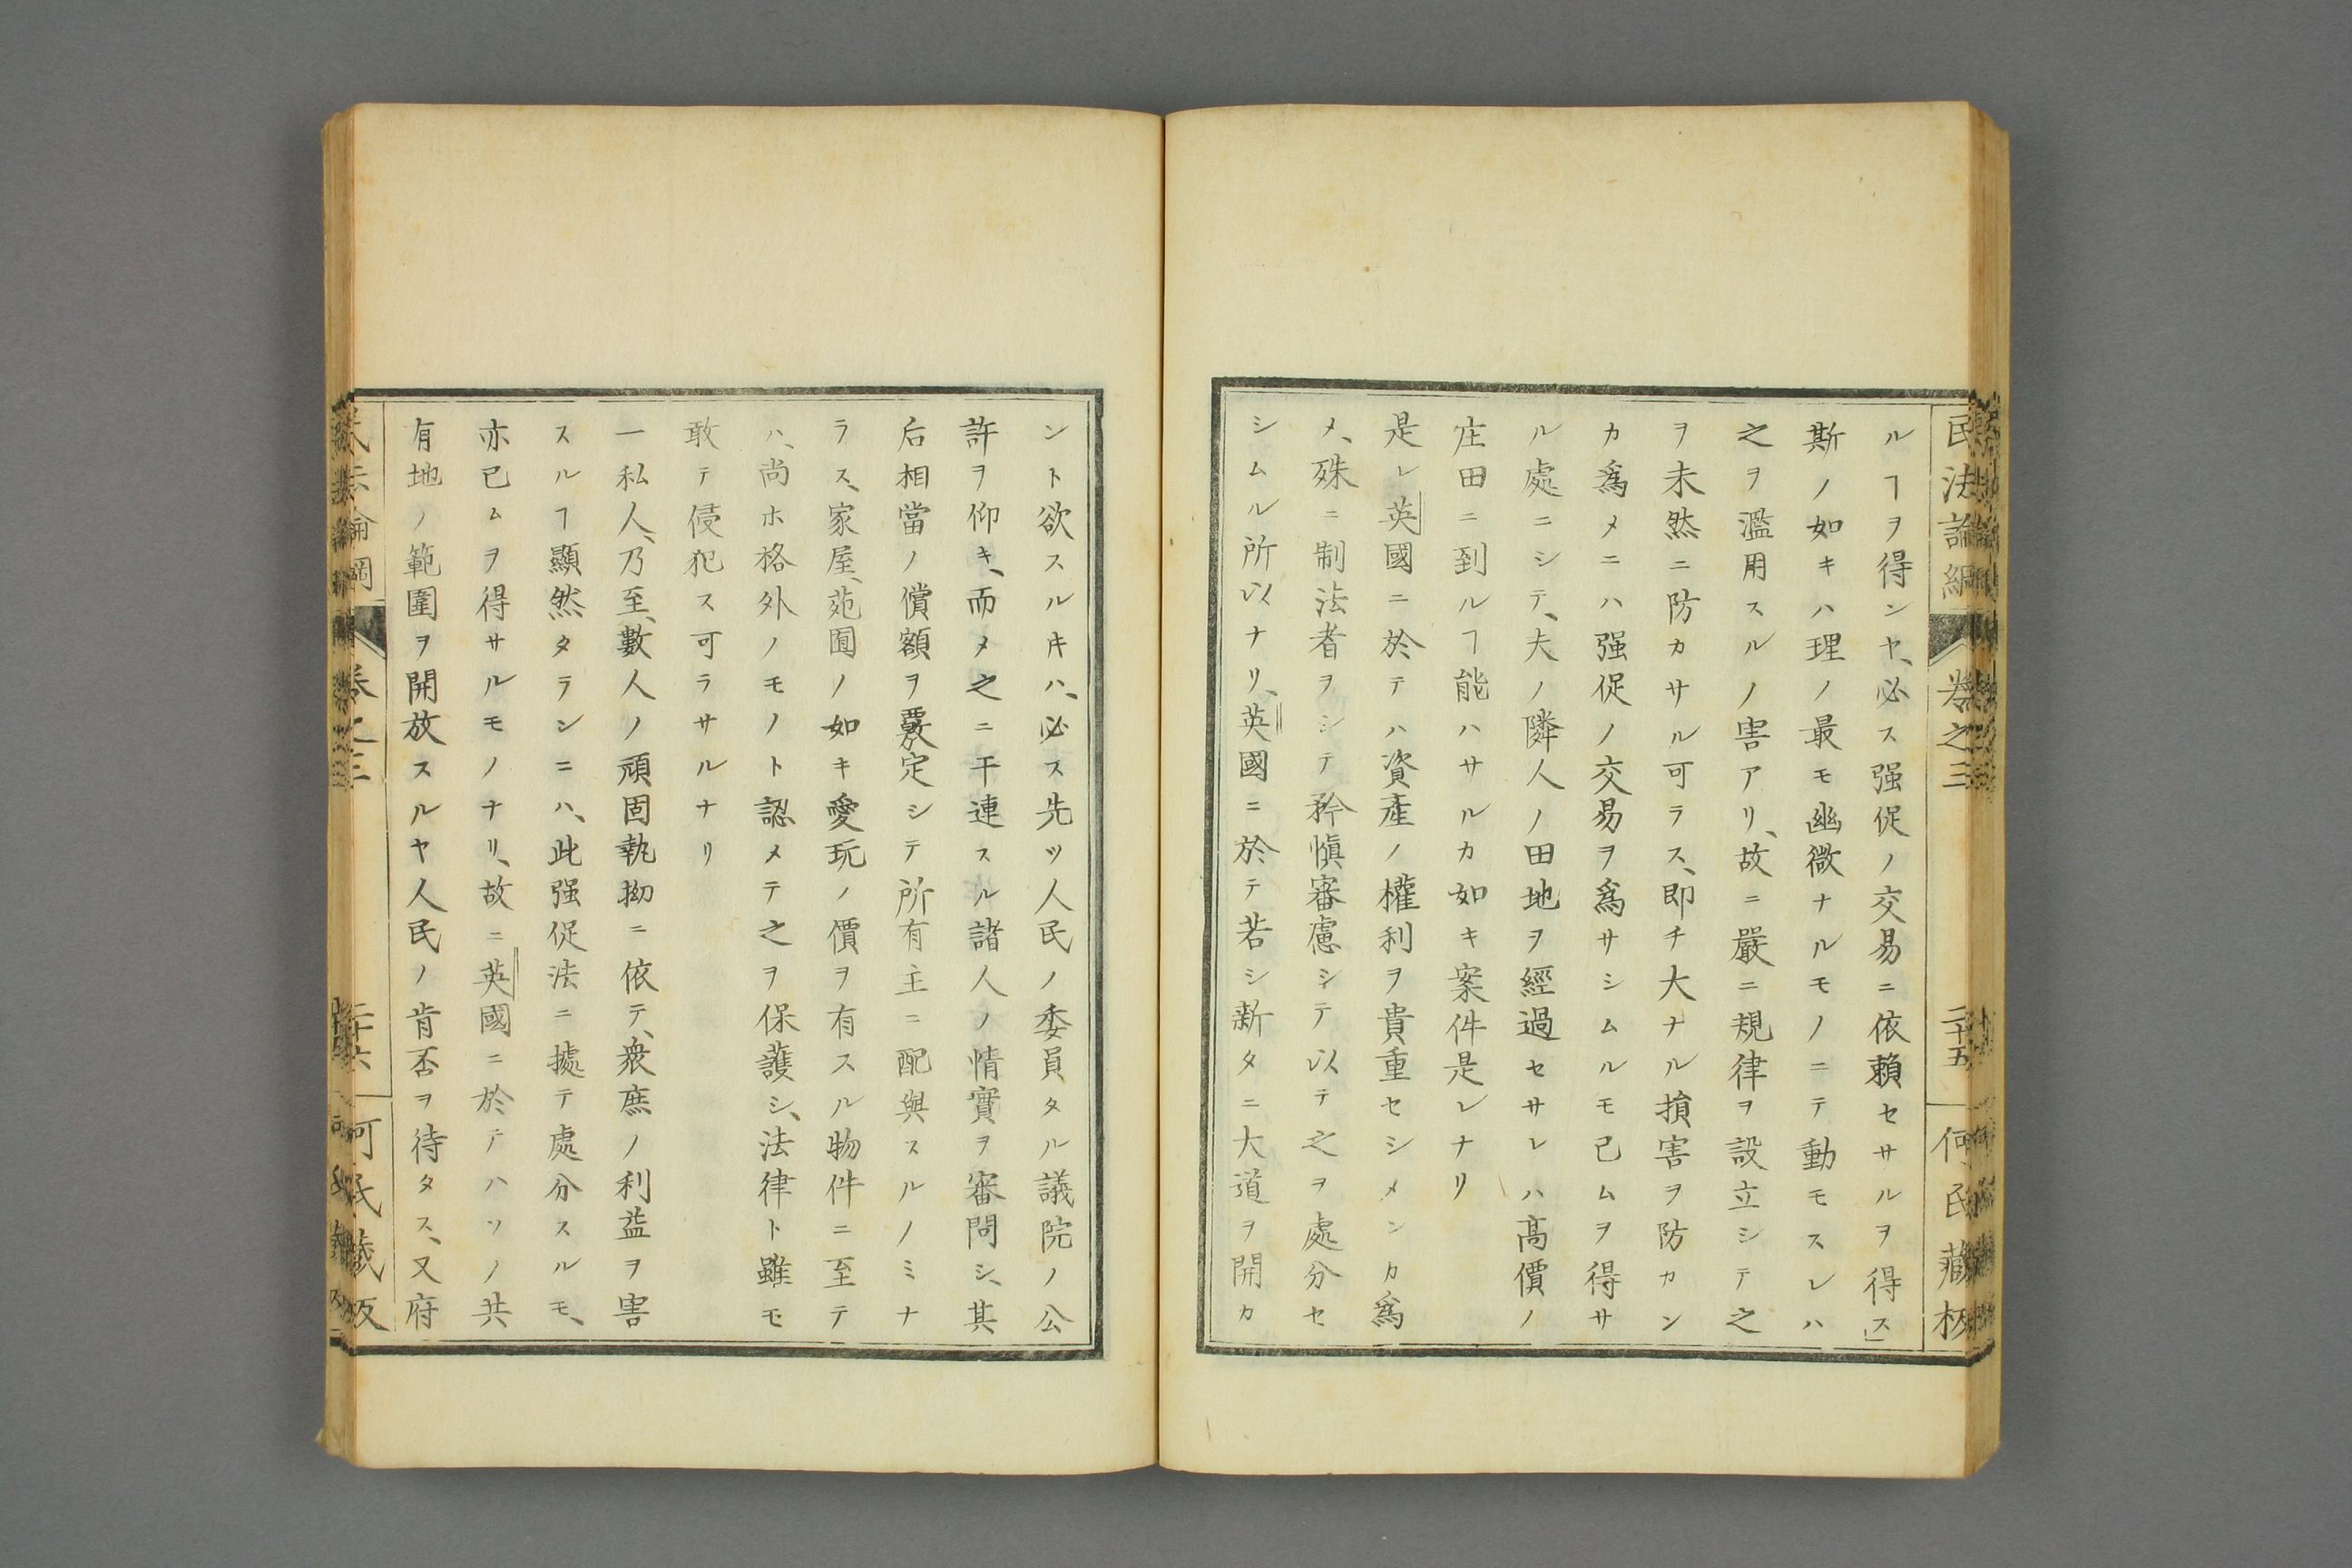 民法論綱 卷之三 二十五 何氏藏板
ルヿヲ得ンヤ、必ス强促ノ交易ニ依賴セサルヲ得ス」
斯ノ如キハ理ノ最モ幽微ナルモノニテ動モスレハ
之ヲ濫用スルノ害アリ、故ニ嚴ニ規律ヲ設立シテ之
ヲ未然ニ防カサル可ラス、即チ大ナル損害ヲ防カン
カ爲メニハ强促ノ交易ヲ爲サシムルモ已ムヲ得サ
ル處ニシテ、夫ノ隣人ノ田地ヲ經過セサレハ高價ノ
庄田ニ到ルヿ能ハサルカ如キ案件是レナリ
是レ英國ニ於テハ資產ノ權利ヲ貴重セシメンカ爲
メ、殊ニ制法者ヲシテ矜愼審慮シテ以テ之ヲ處分セ
シムル所以ナリ、英國ニ於テ若シ新タニ大道ヲ開カ
ント欲スル𪜈ハ、必ス先ツ人民ノ委員タル議院ノ公
許ヲ仰キ、而メ之ニ干連スル諸人ノ情實ヲ審問シ、其
后相當ノ償額ヲ覈定シテ所有主ニ配與スルノミナ
ラス、家屋、苑囿ノ如キ愛玩ノ價ヲ有スル物件ニ至テ
ハ、尚ホ格外ノモノト認メテ之ヲ保護シ、法律ト雖モ
敢テ侵犯ス可ラサルナリ
一私人、乃至、數人ノ頑固執拗ニ依テ、衆庶ノ利益ヲ害
スルヿ顯然タランニハ、此强促法ニ據テ處分スルモ、
亦已ムヲ得サルモノナリ、故ニ英國ニ於テハソノ共
有地ノ範圍ヲ開放スルヤ人民ノ肯否ヲ待タス、又府
卷之三 二十六 何氏藏板